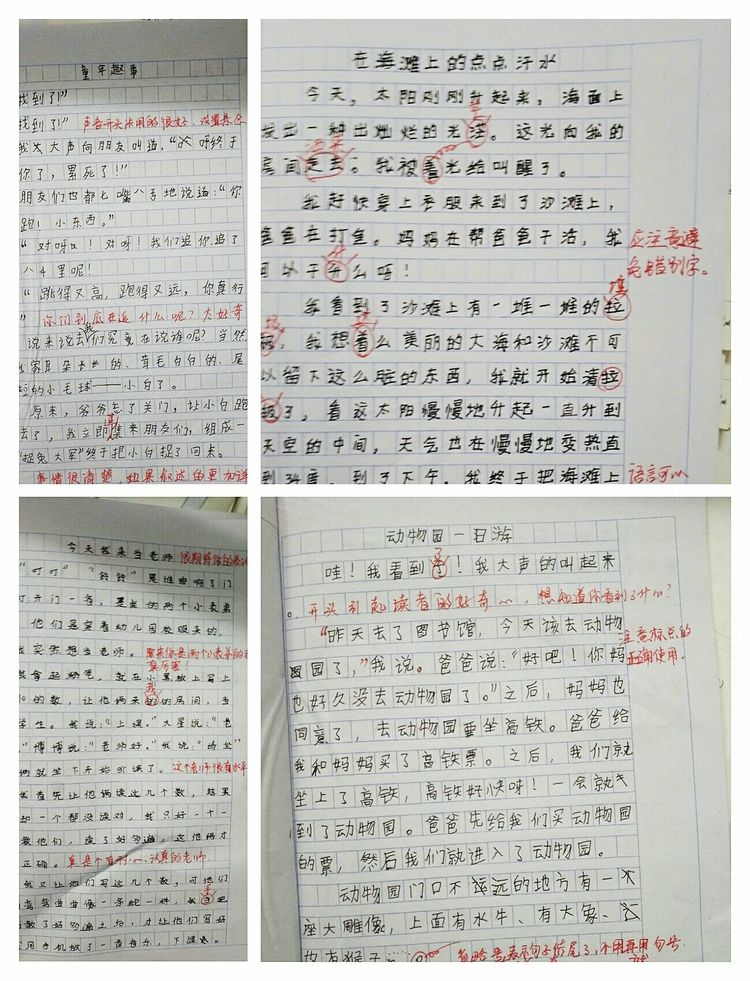 童年趣事
找到了!”
找到了!” 声音开头运用的很好
我大大声向朋友叫道,“哎呀终于
你了,累死了!”
朋友们也都七嘴八舌地说道:“你
跑!小东西。”
“对呀!对呀!我们追你追了
八千里呢!
“跳得又高,跑得又远,你真行
” 你们到底在追什么呢?大好奇
说来说去我们究竟在说谁呢?当然
的、茸毛白白的、尾
的小毛球——小白了。
原来,爷爷忘了关门,让小白跑
去了,我立即集来朋友们,组成一
“捉兔大军”终于把小白捉了回来。
事情很清楚,如果叙述的更加详
在海滩上的点点汗水
今天,太阳刚刚升起来,海面上
发出一种出灿烂的光
。这光向我的
房间走去。我被着光给叫醒了。
我赶快穿上衣服来到了沙滩上,
爸爸在打鱼。妈妈在帮爸爸干活,我
可以干什么呀!
应注意避
免错别字。
我看到了沙滩上有一堆一堆的垃
圾,我想着么美丽的大海和沙滩不可
以留下这么脏的东西,我就开始清垃
圾了,看这太阳慢慢地升起一直升到
天空的中间,天气也在慢慢地变热直
到34度,到了下午,我终于把海滩上
语言可以
今天我来当老师 很期待你的表现
“叮叮”“铃铃”是谁按响了门
打开门一看,是我的两个小表弟
他们是穿着幼儿园校服来的,
我突然想当老师。 原来你是两个小表弟的老
的数,让他俩来我的房间,当
学生。我说:“上课。”大星说:“老
”博博说:“老师好。”我说:“请坐”
俩就坐下开始听课了。 这个老师很有水平
我首先让他俩读这几个数,结果
却一个都没读对,我只好一个一
教他们,读了好多遍,这他俩才
正确。 真是个有耐心、认真的老师.
我又让他们写这几个数,可他们
弯弯曲曲像一条蛇一样,我
教了好多遍之后,才让他们写好
用手机放了一声音乐,下课了。
动物园一日游
哇!我看到了!我大声的叫起来
。开头引起读者的好奇心,想知道你看到了什么?
“昨天去了图书馆,今天该去动物
园了,”我说。爸爸说:“好吧!你妈
注意标点的
正确使用.
也好久没去动物园了。”之后,妈妈也
同意了,去动物园要坐高铁。爸爸给
我和妈妈买了高铁票。之后,我们就
坐上了高铁,高铁好快呀!一会就
到了动物园。爸爸先给我们买动物园
的票,然后我们就进入了动物园。
动物园门口不远远的地方有一
座大雕像,上面有水牛、有大象、
也有猴子……。 省略号表示句子结尾了,不用再用句号